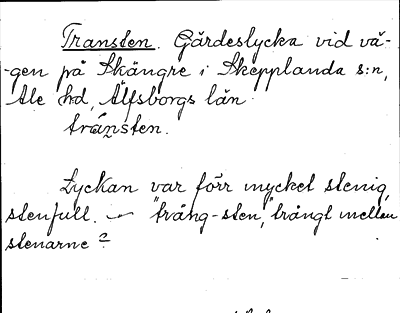 Transten. Gärdeslycka vid vä-
-gen på Skängre i Skepplanda s:n,
Ale hd, Älfsborgs län.
tránsten.
Lyckan var förr mycket stenig,
stenfull. — "trång-sten", trångt mellan
stenarne?